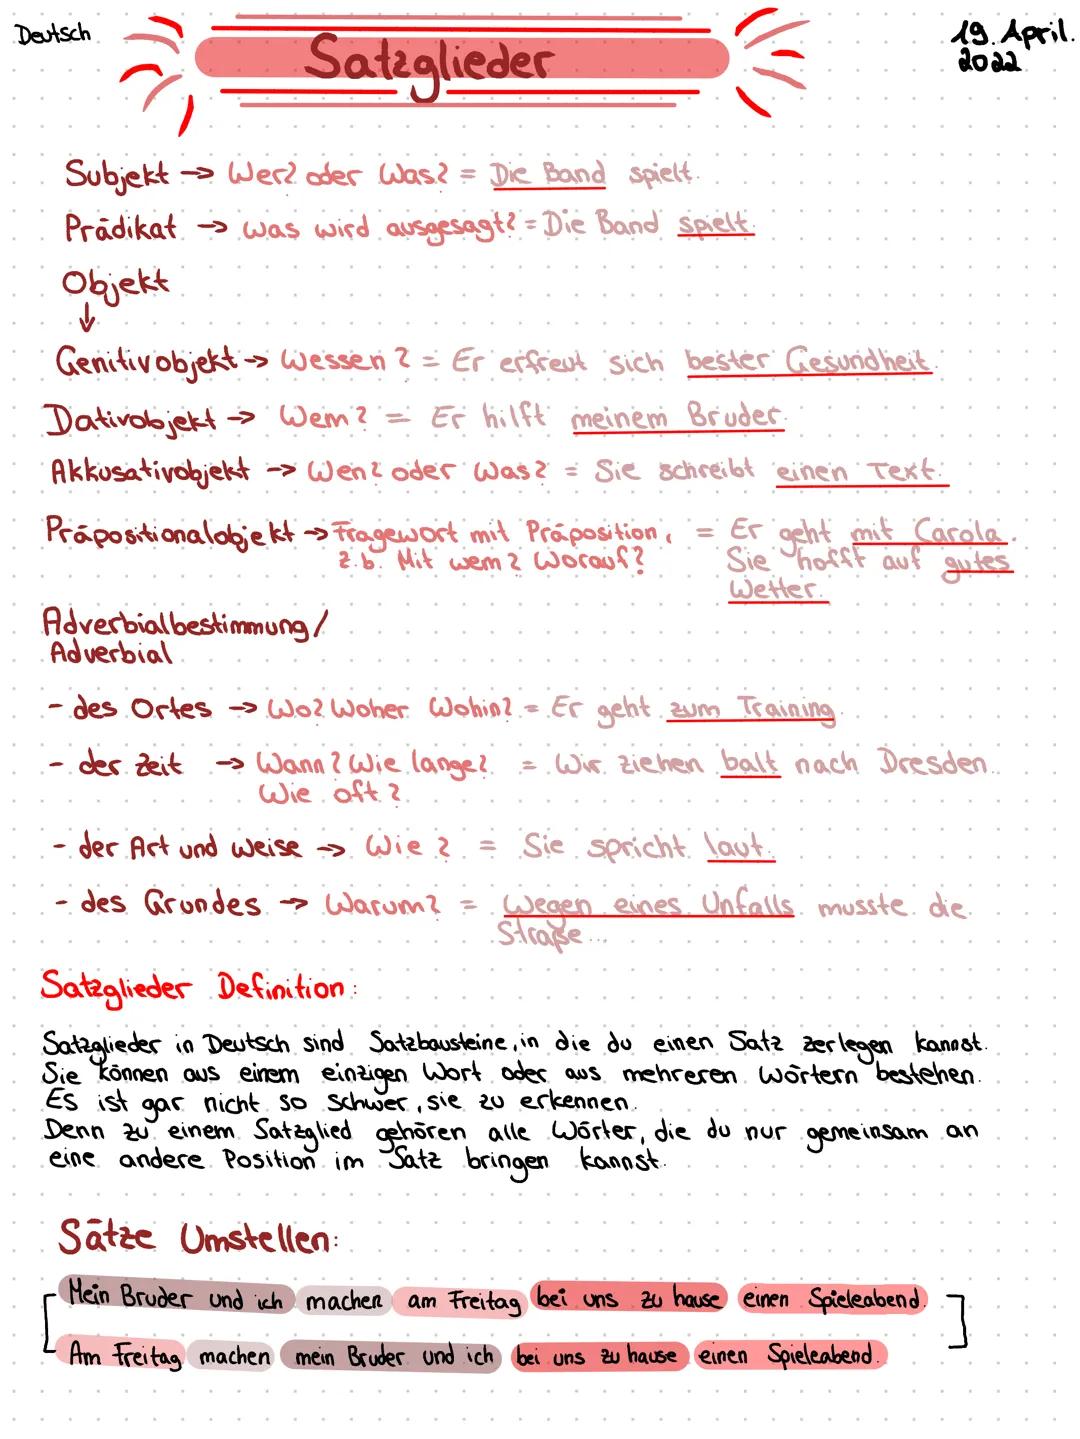 Deutsch
19. April.
2022
Satzglieder
Subjekt → Wer? oder Was? = Die Band spielt.
Prädikat → was wird ausgesagt? = Die Band spielt.
Objekt
↓
Genitivobjekt → Wessen? = Er erfreut sich bester Gesundheit.
Dativobjekt → Wem? = Er hilft meinem Bruder.
Akkusativobjekt → Wen? oder Was? = Sie schreibt einen Text.
Präpositionalobjekt → Fragewort mit Präposition, = Er geht mit Carola.
z.b. Mit wem? Worauf? Sie hofft auf gutes
Wetter.
Adverbialbestimmung/
Adverbial
- des Ortes → Wo? Woher Wohin? = Er geht zum Training.
- der Zeit → Wann? Wie lange? = Wir ziehen balt nach Dresden.
Wie oft?
- der Art und weise → Wie? = Sie spricht laut.
- des Grundes → Warum? = Wegen eines Unfalls musste die
Straße...
Satzglieder Definition:
Satzglieder in Deutsch sind Satzbausteine, in die du einen Satz zerlegen kannst.
Sie können aus einem einzigen Wort oder aus mehreren Wörtern bestehen.
Es ist gar nicht so schwer, sie zu erkennen.
Denn zu einem Satzglied gehören alle Wörter, die du nur gemeinsam an
eine andere Position im Satz bringen kannst.
Sätze Umstellen:
Mein Bruder und ich machen am Freitag bei uns zu hause einen Spieleabend.
Am Freitag machen mein Bruder und ich bei uns zu hause einen Spieleabend.